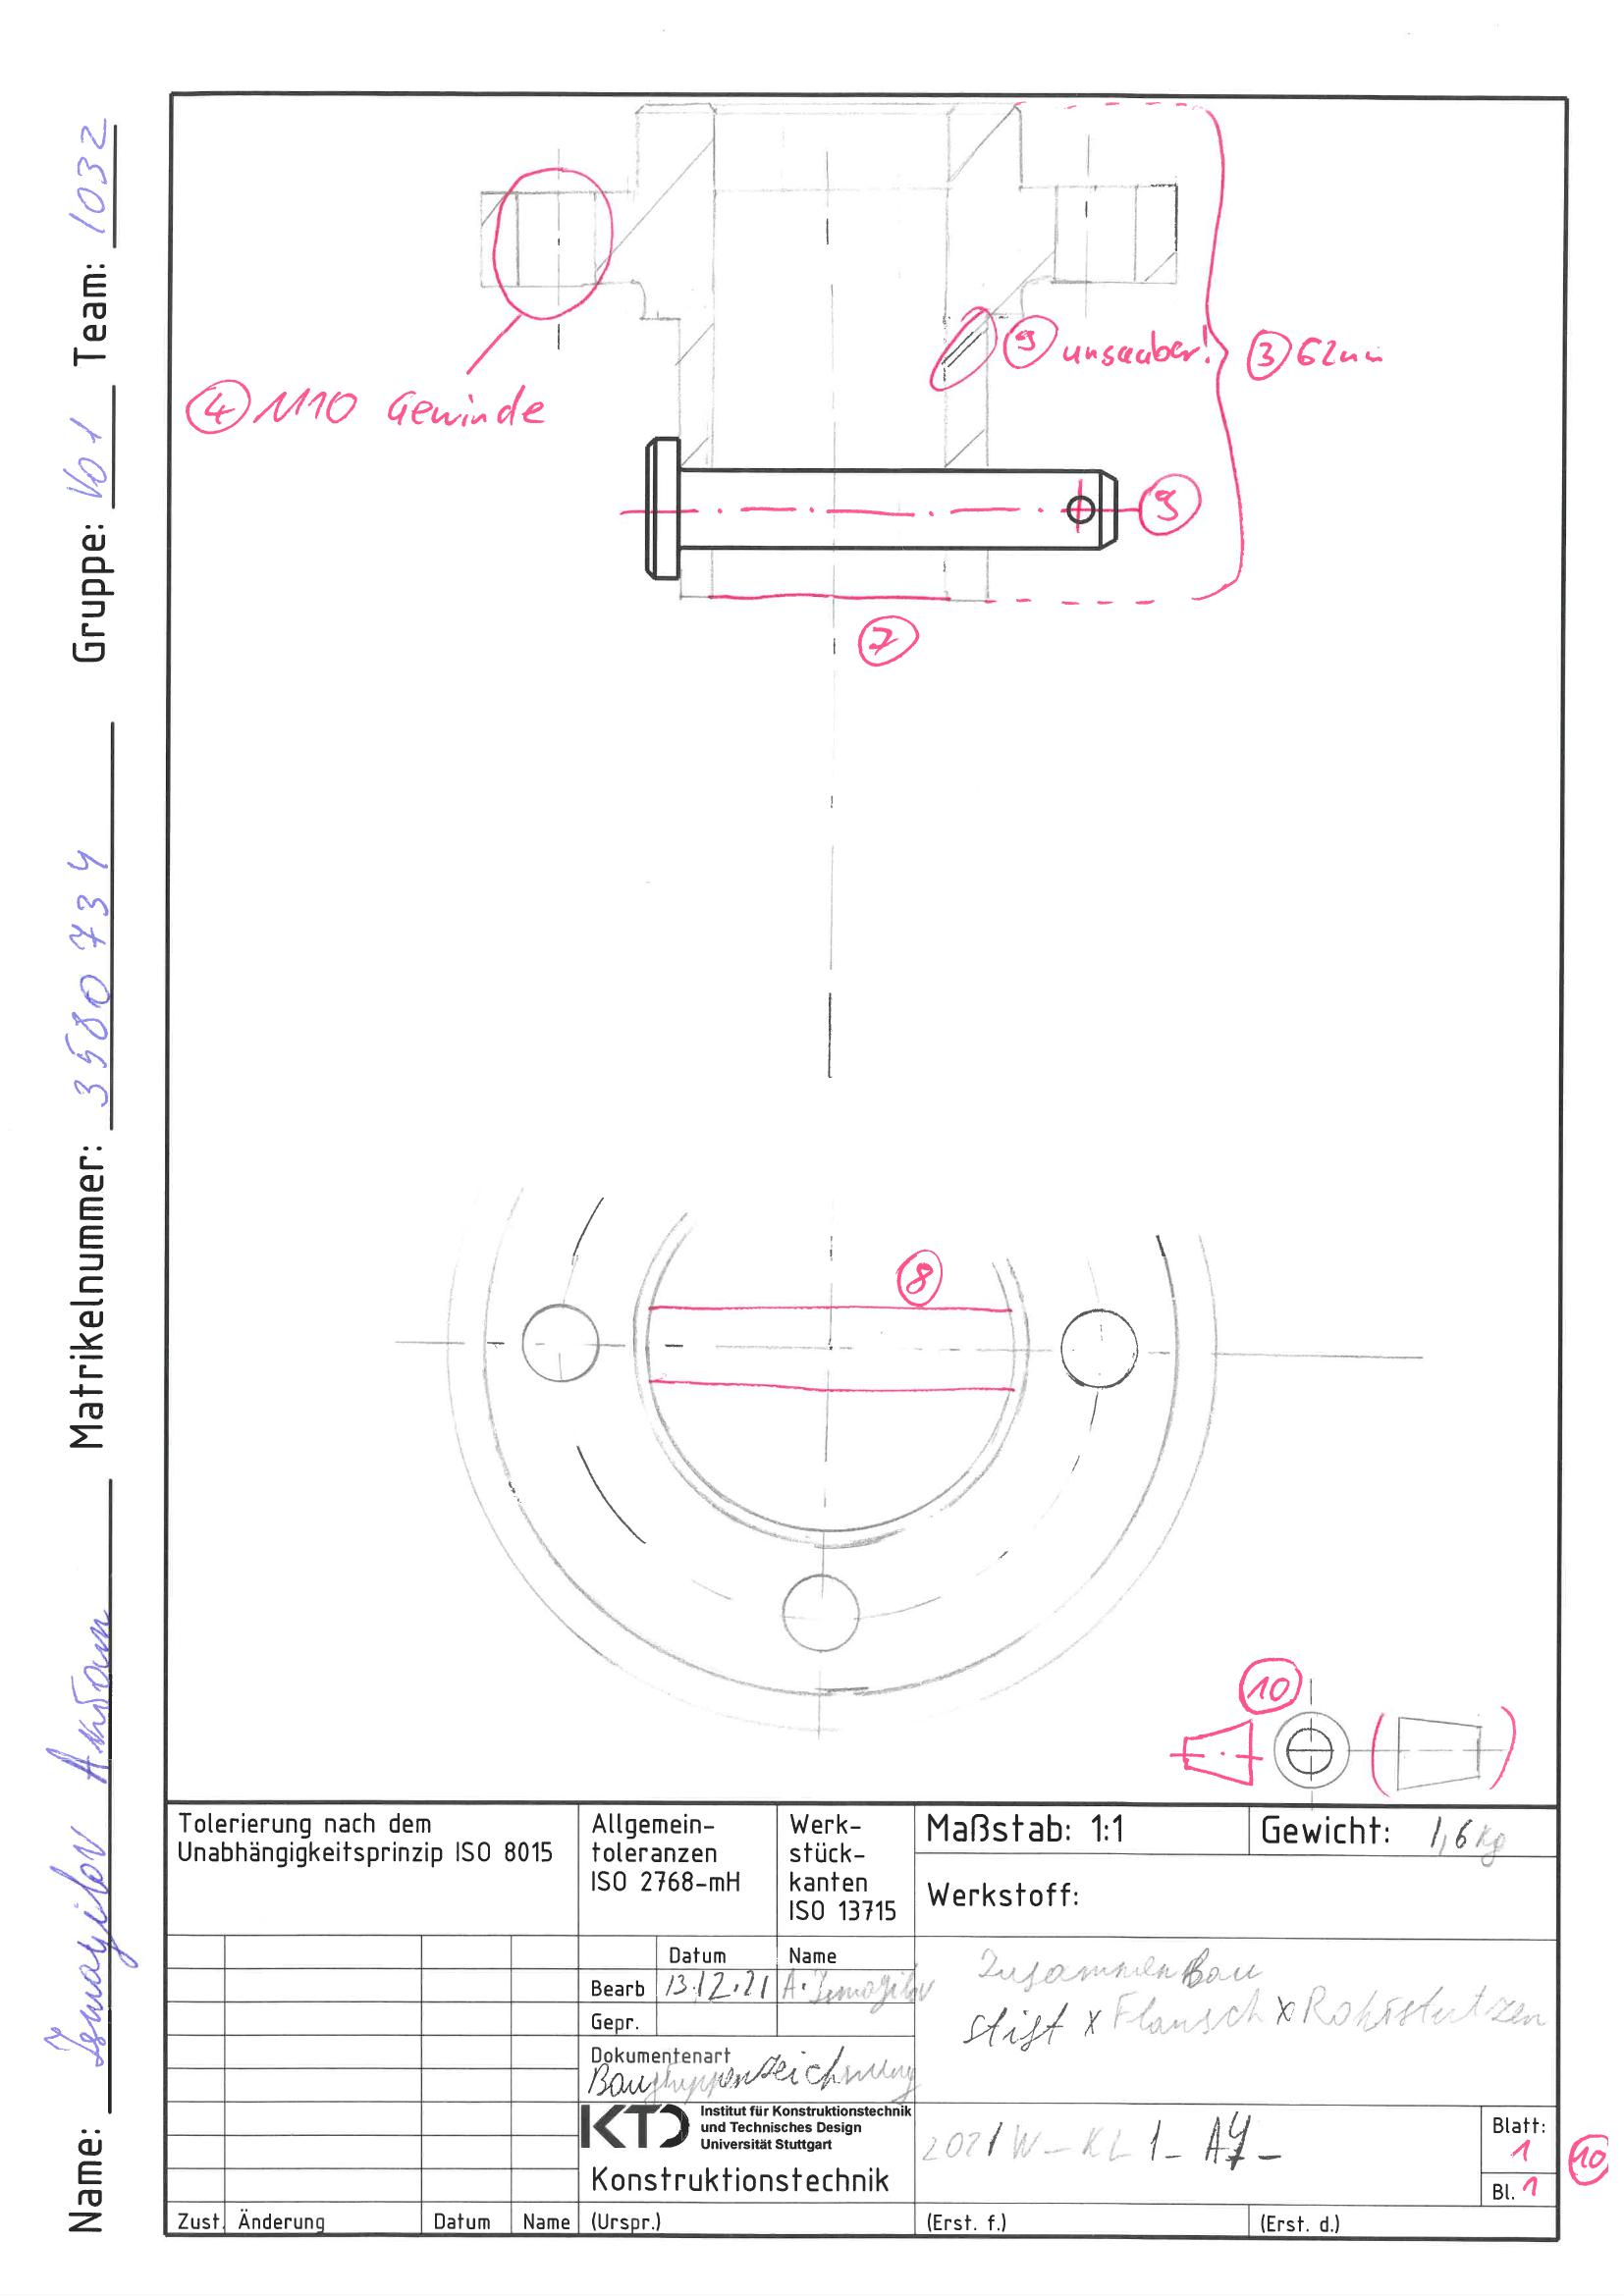 Name: Ismayilov Matrikelnummer: 3580734 Gruppe: Vo1 Team: 1032
④ M10 Gewinde
⑨ unsauber!
③ 62mm
⑨
⑦
⑧
⑩
Tolerierung nach dem
Unabhängigkeitsprinzip ISO 8015
Allgemein-
toleranzen
ISO 2768-mH
Werk-
stück-
kanten
ISO 13715
Maßstab: 1:1
Gewicht: 1,6 kg
Werkstoff:
Datum Name
Bearb 13.12.21 A. Ismayilov
Gepr.
Dokumentenart
Baugruppenzeichnung
Zusammenbau
Stift x Flansch x Rohrstutzen
KTD
Institut für Konstruktionstechnik
und Technisches Design
Universität Stuttgart
Konstruktionstechnik
2021W-KL1-A4-
Blatt:
1
Bl. 1
⑩
Zust. Änderung Datum Name (Urspr.) (Erst. f.) (Erst. d.)